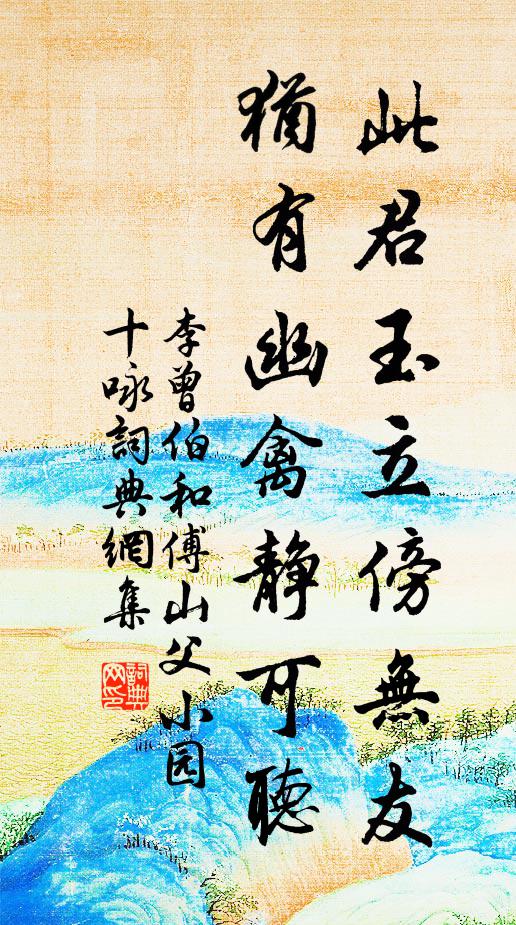 此君玉立傍無友
猶有幽禽静可聽
李曾伯和傅山父小园
十咏詞典網集
詞典网印